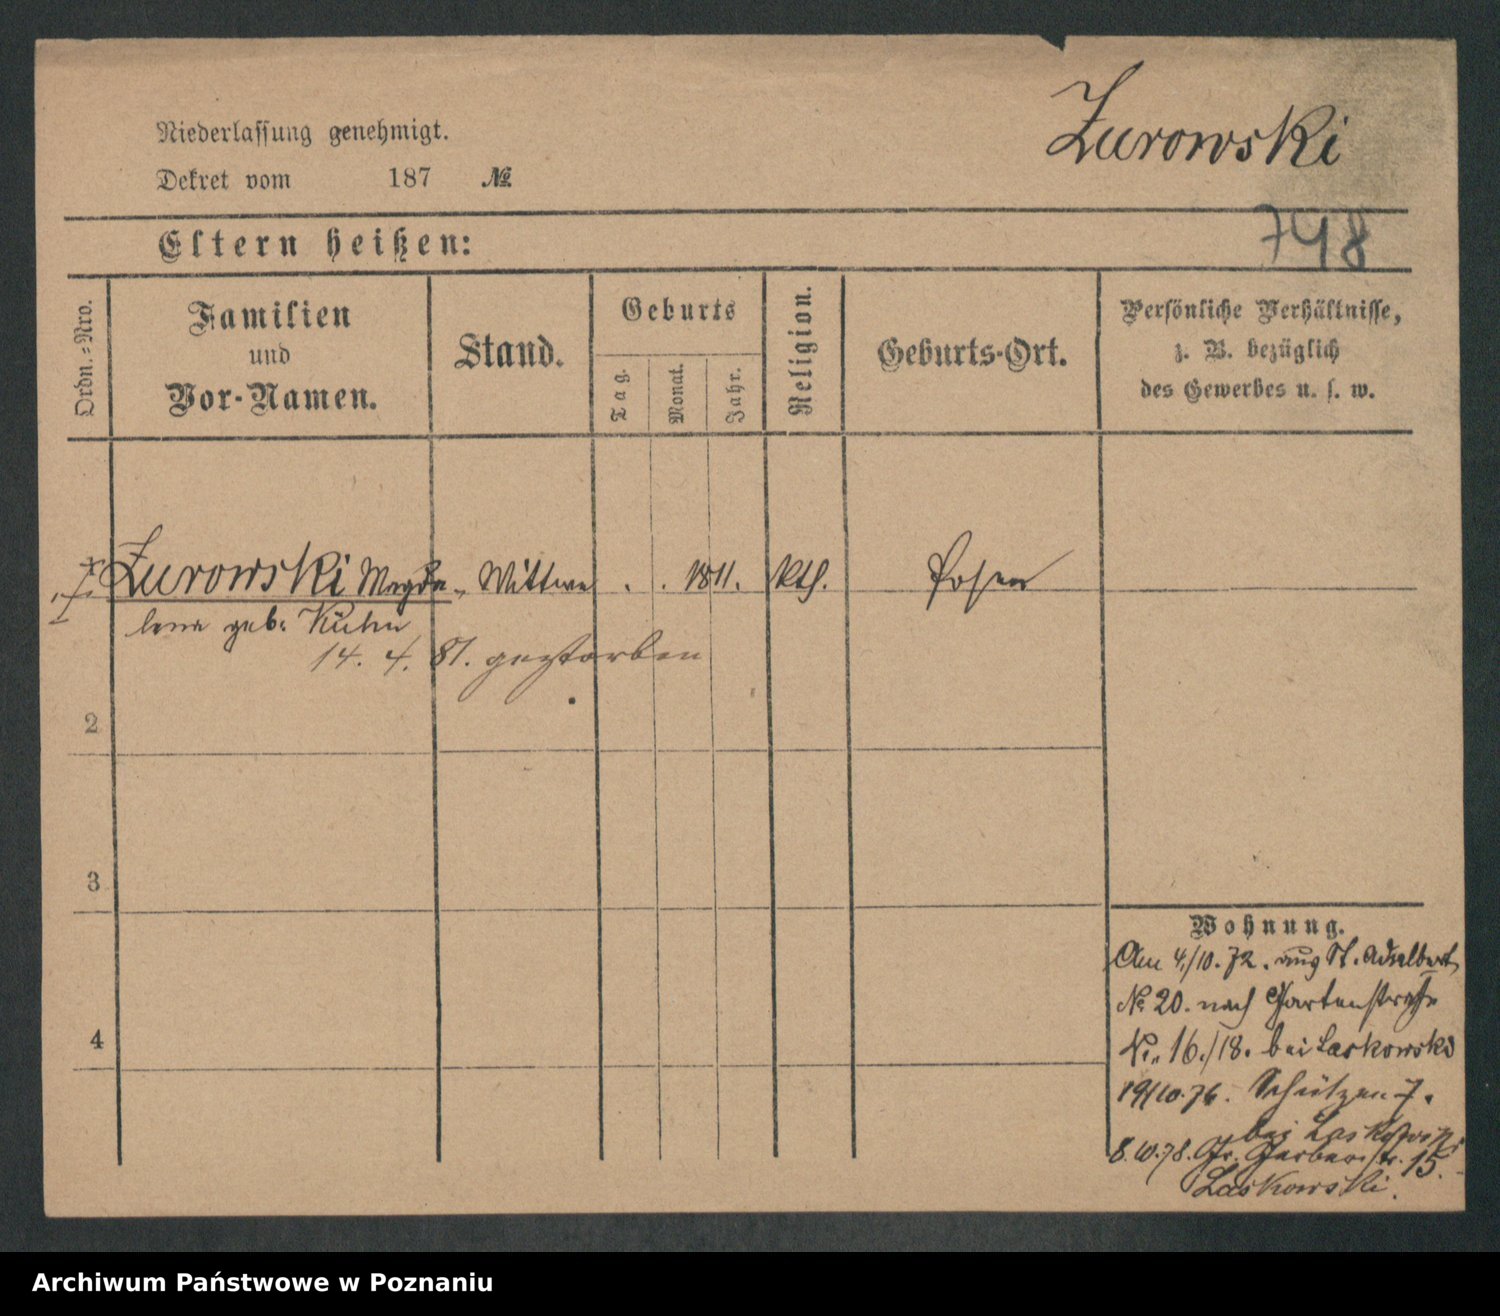 Zurowski
Niederlassung genehmigt.
Dekret vom 187 №
748
Eltern heißen:
Ordn.=Nro.
Familien
und
Vor-Namen.
Stand.
Geburts
Tag.
Monat.
Jahr.
Religion.
Geburts-Ort.
Persönliche Verhältnisse,
z. B. bezüglich
des Gewerbes u. s. w.
Zurowski Magda- Wittwe . . 1811. kth. Posen
lena geb. Kuhn
14. 4. 81. gestorben
2
3
4
Wohnung.
Am 4/10. 72. aus St. Adalbert
№ 20. nach Gartenstraße
Nr. 16./18. bei Laskowski
19/10.76. Schützen 7.
bei Laskowski
8.10.78. Gr. Gerberstr. 15.
Laskowski.
Archiwum Państwowe w Poznaniu